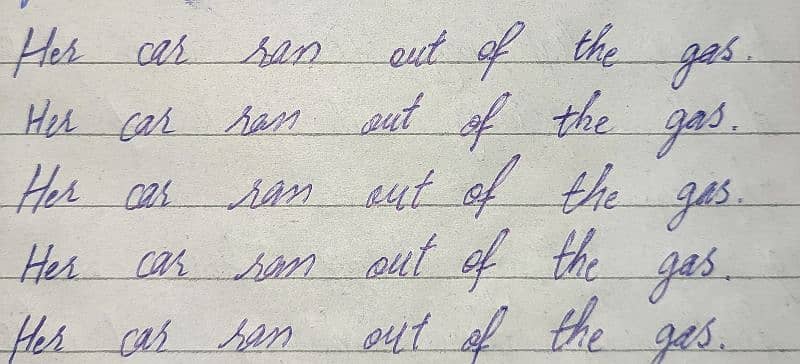 Her car ran out of the gas.
Her car ran out of the gas.
Her car ran out of the gas.
Her car ran out of the gas.
Her car ran out of the gas.